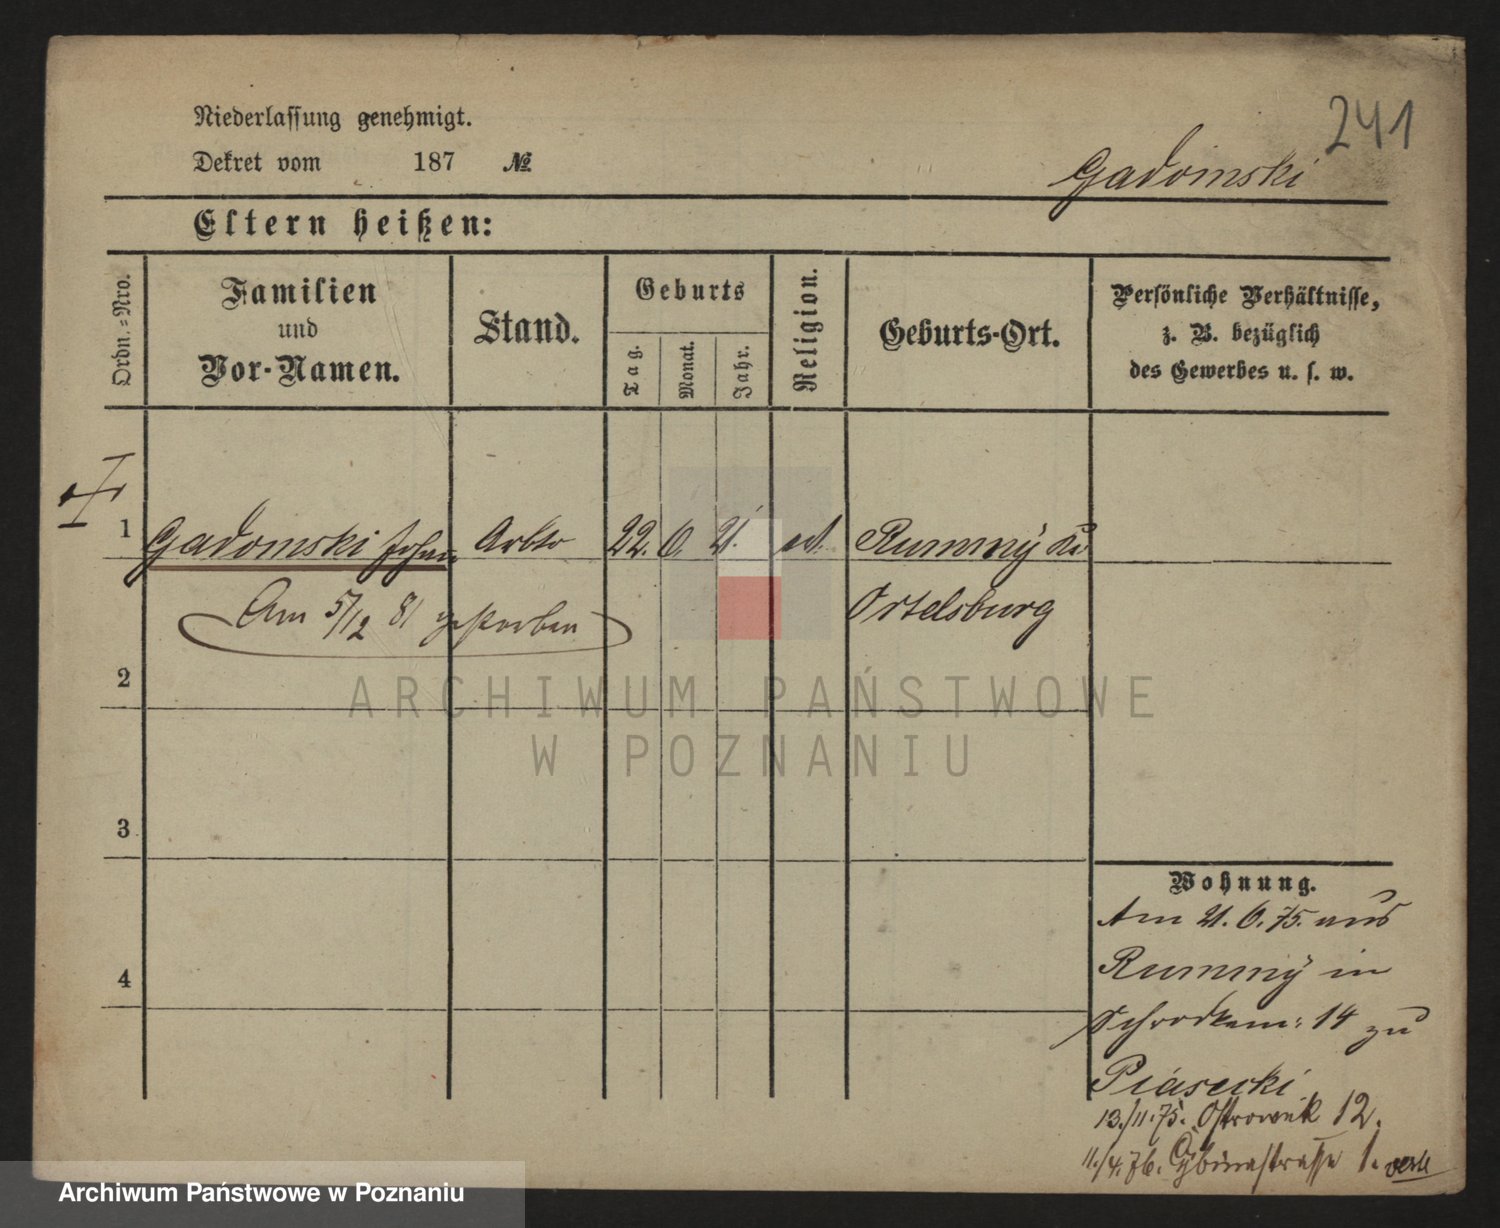 241
Niederlassung genehmigt.
Dekret vom 187 №
Gadomski
Eltern heißen:
Ordn.-Nro.
Familien
und
Vor-Namen.
Stand.
Geburts
Tag.
Monat.
Jahr.
Religion.
Geburts-Ort.
Persönliche Verhältnisse,
z. B. bezüglich
des Gewerbes u. s. w.
1 Gadomski Johann Arbtr 22. 6. 21. Rummy Kr
Ortelsburg
Am 5/12 81 gestorben
2
3
4
Wohnung.
Am 21. 6. 75. aus
Rummy in
Schrodkam: 14 zu
Piasecki
13./11. 75. Ostrowek 12.
11./4. 76. Cybinastrasse 1.
ARCHIWUM PAŃSTWOWE
W POZNANIU
Archiwum Państwowe w Poznaniu